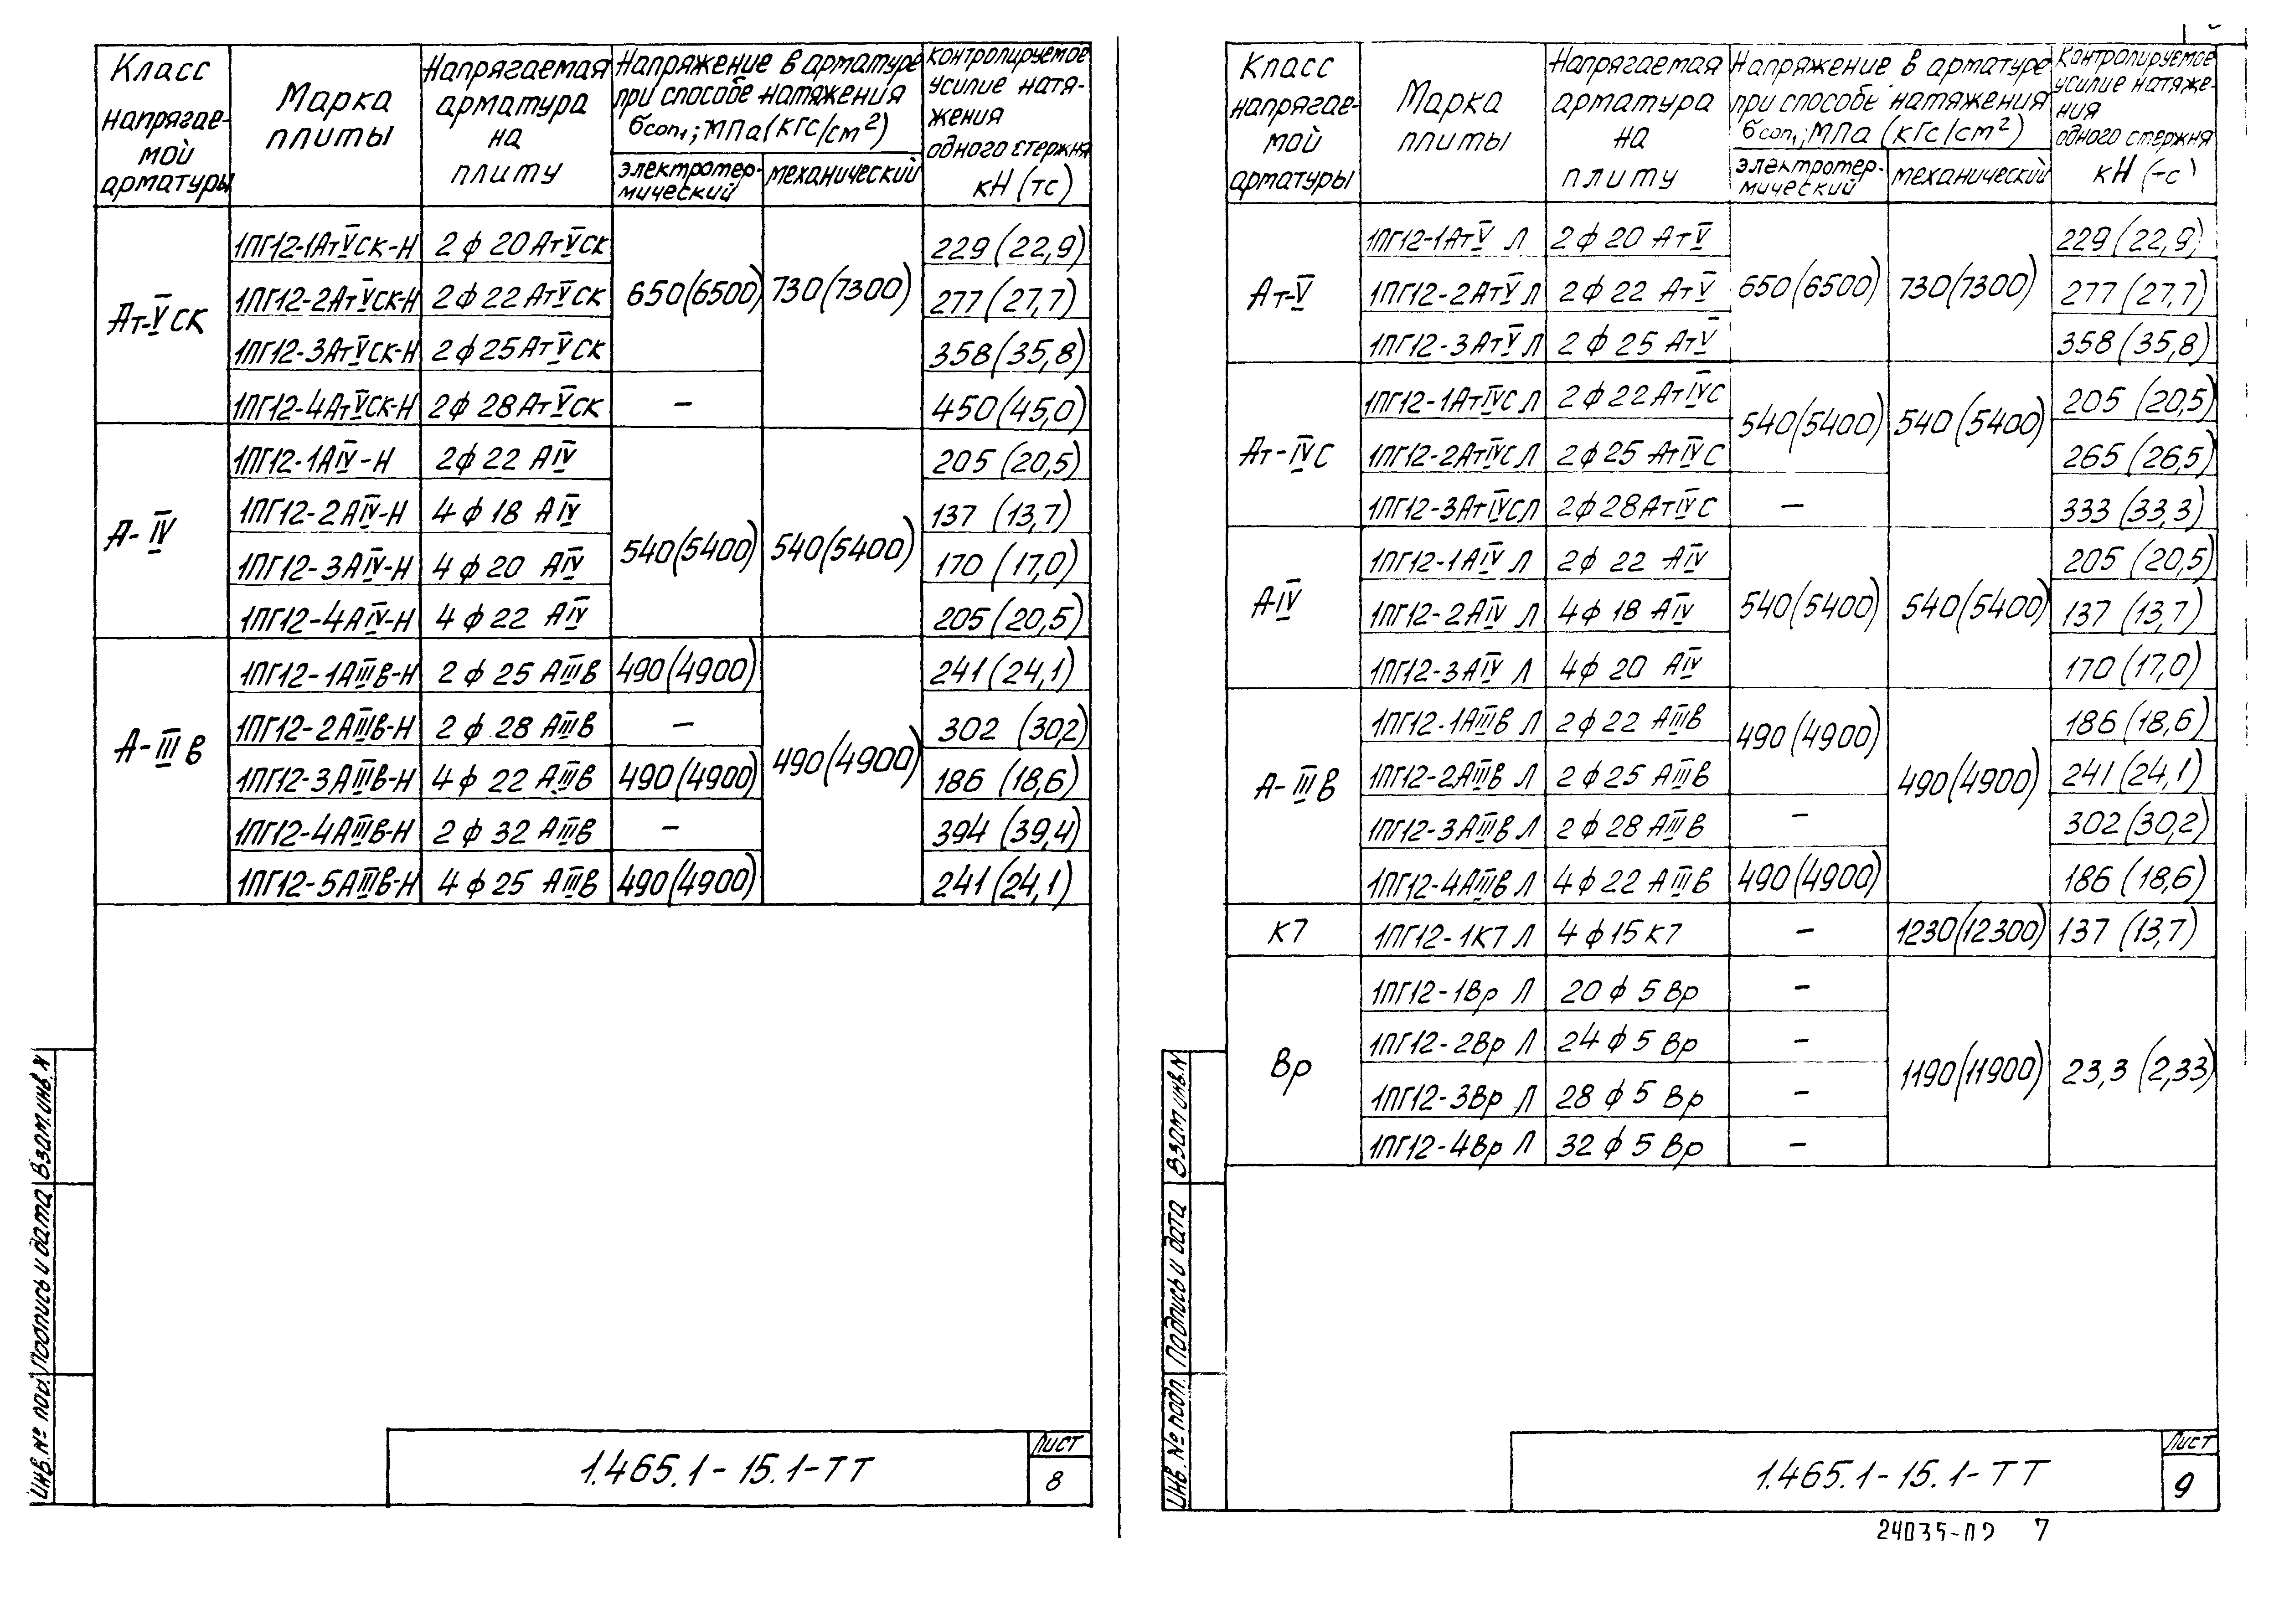 Класс напрягае-мой арматуры | Марка плиты | Напрягаемая арматура на плиту | Напряжение в арматуре при способе натяжения бcon1; МПа (кГс/см²) | Контролируемое усилие натя-жения одного стержня кН (тс)
электротер-мический | механический
Ат-V̅ СК | 1ПГ12-1АтVСК-Н | 2ф 20 АтVСК | 650(6500) | 730(7300) | 229 (22,9)
1ПГ12-2АтVСК-Н | 2ф 22 АтVСК | 277 (27,7)
1ПГ12-3АтVСК-Н | 2ф 25 АтVСК | 358 (35,8)
1ПГ12-4АтVСК-Н | 2ф 28 АтVСК | – | 450 (45,0)
А-IV | 1ПГ12-1АIV-Н | 2ф 22 АIV | 540(5400) | 540(5400) | 205 (20,5)
1ПГ12-2АIV-Н | 4 ф 18 АIV | 137 (13,7)
1ПГ12-3АIV-Н | 4 ф 20 АIV | 170 (17,0)
1ПГ12-4АIV-Н | 4 ф 22 АIV | 205 (20,5)
А-III в | 1ПГ12-1АIIIв-Н | 2 ф 25 АIIIв | 490(4900) | 490(4900) | 241 (24,1)
1ПГ12-2АIIIв-Н | 2 ф 28 АIIIв | – | 302 (30,2)
1ПГ12-3АIIIв-Н | 4 ф 22 АIIIв | 490(4900) | 186 (18,6)
1ПГ12-4АIIIв-Н | 2 ф 32 АIIIв | – | 394 (39,4)
1ПГ12-5АIIIв-Н | 4 ф 25 АIIIв | 490(4900) | 241 (24,1)
Инв. № под. Подпись и дата Взам. инв. №
1.465.1-15.1-ТТ
Лист
8
Класс напрягае-мой арматуры | Марка плиты | Напрягаемая арматура на плиту | Напряжение в арматуре при способе натяжения бcon1; МПа (кГс/см²) | Контролируемое усилие натяже-ния одного стержня кН (-с)
электротер-мический | механический
Ат-V | 1ПГ12-1АтV Л | 2ф 20 АтV | 650(6500) | 730(7300) | 229 (22,9)
1ПГ12-2АтV Л | 2ф 22 АтV | 277 (27,7)
1ПГ12-3АтV Л | 2 ф 25 АтV | 358 (35,8)
Ат-IVС | 1ПГ12-1АтIVС Л | 2ф 22 АтIVС | 540(5400) | 540(5400) | 205 (20,5)
1ПГ12-2АтIVС Л | 2ф 25 АтIVС | 265 (26,5)
1ПГ12-3АтIVС Л | 2ф 28 АтIVС | – | 333 (33,3)
АIV | 1ПГ12-1АIV Л | 2ф 22 АIV | 540(5400) | 540(5400) | 205 (20,5)
1ПГ12-2АIV Л | 4ф 18 АIV | 137 (13,7)
1ПГ12-3АIV Л | 4ф 20 АIV | 170 (17,0)
А-IIIв | 1ПГ12-1АIIIв Л | 2ф 22 АIIIв | 490(4900) | 490(4900) | 186 (18,6)
1ПГ12-2АIIIв Л | 2 ф 25 АIIIв | 241 (24,1)
1ПГ12-3АIIIв Л | 2 ф 28 АIIIв | – | 302 (30,2)
1ПГ12-4АIIIв Л | 4 ф 22 АIIIв | 490(4900) | 186 (18,6)
К7 | 1ПГ12-1К7 Л | 4 ф 15 К7 | – | 1230(12300) | 137 (13,7)
Вр | 1ПГ12-1Вр Л | 20 ф 5 Вр | – | 1190(11900) | 23,3 (2,33)
1ПГ12-2Вр Л | 24 ф 5 Вр | –
1ПГ12-3Вр Л | 28 ф 5 Вр | –
1ПГ12-4Вр Л | 32 ф 5 Вр | –
Инв. № подл. Подпись и дата Взам инв. N
1.465.1-15.1-ТТ
Лист
9
7